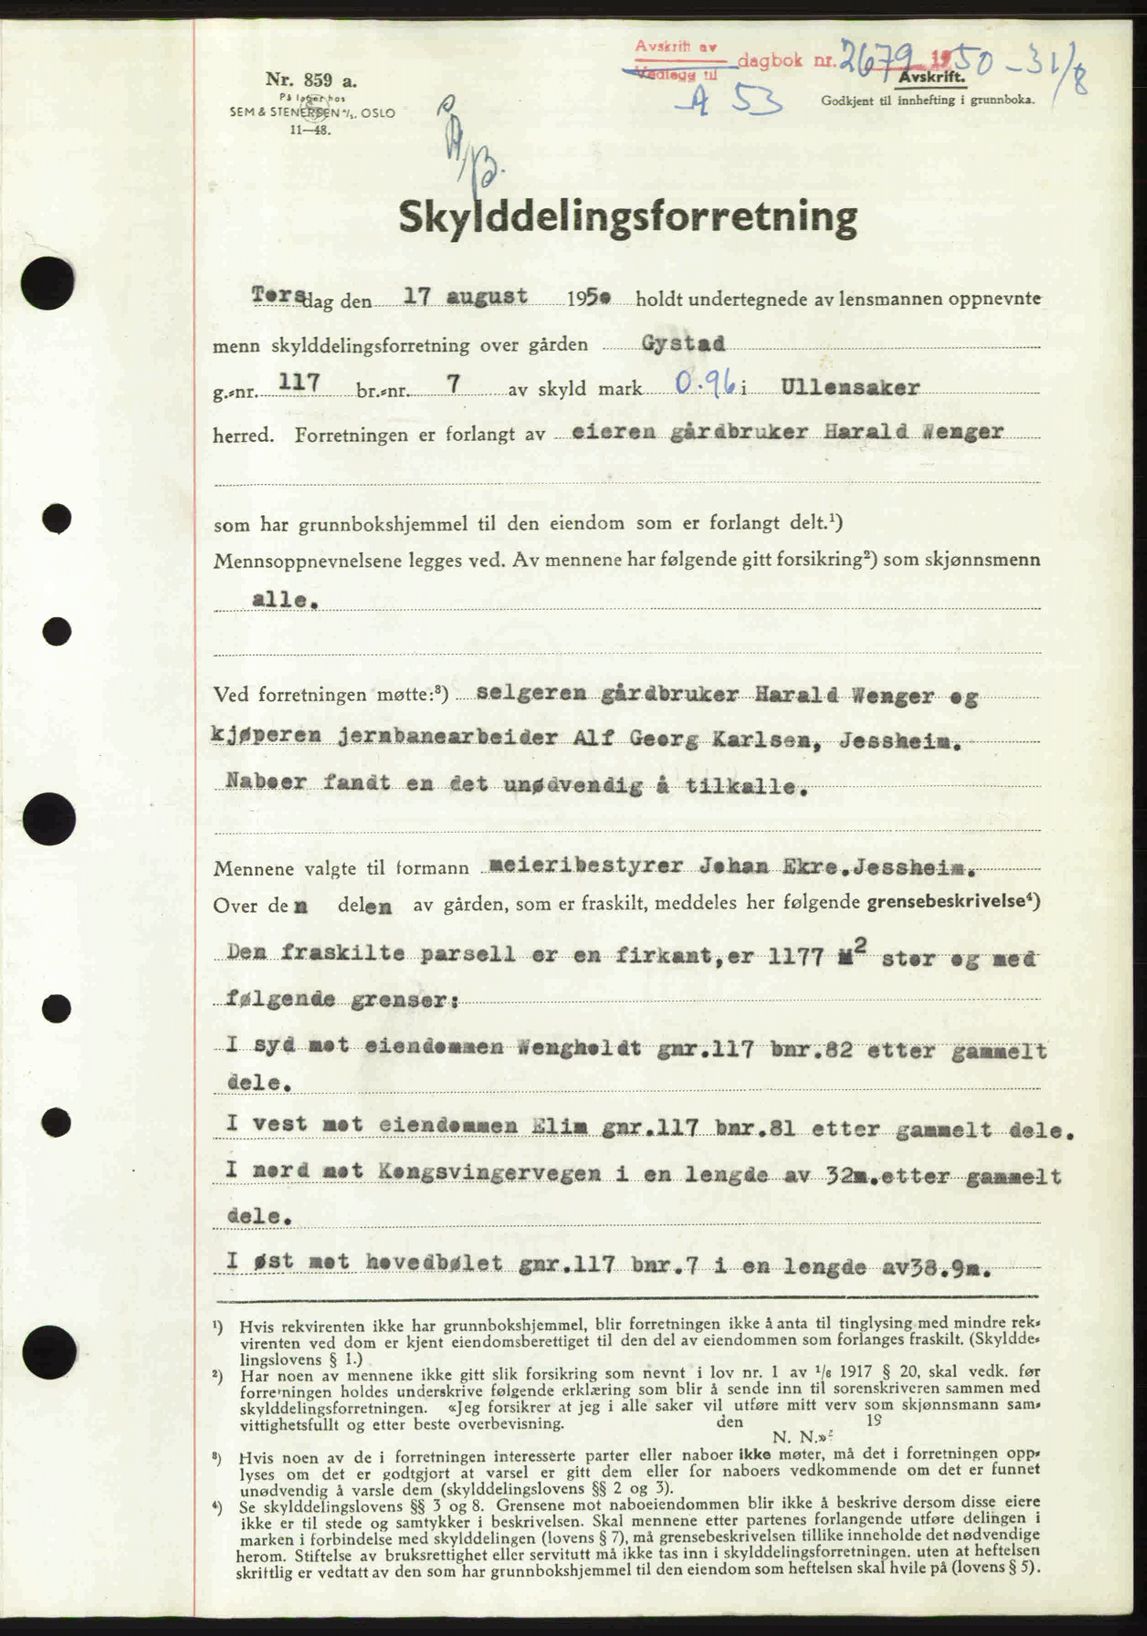 Avskrift av
Vedlegg til
dagbok nr. 2679 1950 - 31/8
A 53
Avskrift.
Godkjent til innhefting i grunnboka.
Nr. 859 a.
På lager hos
SEM & STENERSEN A/S. OSLO
11—48.
A/B.
Skylddelingsforretning
Torsdag den 17 august 1950 holdt undertegnede av lensmannen oppnevnte
menn skylddelingsforretning over gården Gystad
g.-nr. 117 br.-nr. 7 av skyld mark 0.96 i Ullensaker
herred. Forretningen er forlangt av eieren gårdbruker Harald Wenger
som har grunnbokshjemmel til den eiendom som er forlangt delt.¹)
Mennsoppnevnelsene legges ved. Av mennene har følgende gitt forsikring²) som skjønnsmenn
alle.
Ved forretningen møtte:³) selgeren gårdbruker Harald Wenger og
kjøperen jernbanearbeider Alf Georg Karlsen, Jessheim.
Naboer fandt en det unødvendig å tilkalle.
Mennene valgte til formann meieribestyrer Johan Ekre.Jessheim.
Over den delen av gården, som er fraskilt, meddeles her følgende grensebeskrivelse⁴)
Den fraskilte parsell er en firkant,er 1177 M² stor og med
følgende grenser:
I syd mot eiendommen Wengholdt gnr.117 bnr.82 etter gammelt
dele.
I vest mot eiendommen Elim gnr.117 bnr.81 etter gammelt dele.
I nord mot Kongsvingervegen i en lengde av 32m.etter gammelt
dele.
I øst mot hovedbølet gnr.117 bnr.7 i en lengde av38.9m.
¹) Hvis rekvirenten ikke har grunnbokshjemmel, blir forretningen ikke å anta til tinglysing med mindre rek-
virenten ved dom er kjent eiendomsberettiget til den del av eiendommen som forlanges fraskilt. (Skyldde-
lingslovens § 1.)
²) Har noen av mennene ikke gitt slik forsikring som nevnt i lov nr. 1 av 1/6 1917 § 20, skal vedk. før
forretningen holdes underskrive følgende erklæring som blir å sende inn til sorenskriveren sammen med
skylddelingsforretningen. «Jeg forsikrer at jeg i alle saker vil utføre mitt verv som skjønnsmann sam-
vittighetsfullt og etter beste overbevisning. den 19
N. N.»
³) Hvis noen av de i forretningen interesserte parter eller naboer ikke møter, må det i forretningen opp-
lyses om det er godtgjort at varsel er gitt dem eller for naboers vedkommende om det er funnet
unødvendig å varsle dem (skylddelingslovens §§ 2 og 3).
⁴) Se skylddelingslovens §§ 3 og 8. Grensene mot naboeiendommen blir ikke å beskrive dersom disse eiere
ikke er til stede og samtykker i beskrivelsen. Skal mennene etter partenes forlangende utføre delingen i
marken i forbindelse med skylddelingen (lovens § 7), må grensebeskrivelsen tillike inneholde det nødvendige
herom. Stiftelse av bruksrettighet eller servitutt må ikke tas inn i skylddelingsforretningen. uten at heftelsen
skriftlig er vedtatt av den som har grunnbokshjemmel til den eiendom som heftelsen skal hvile på (lovens § 5).